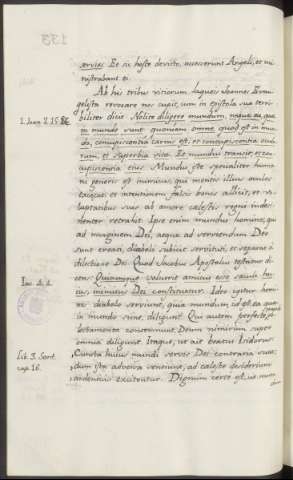 133
servies. Et sic hoste devicto, accesserunt Angeli, et mi
nistrabant ei.
Ab his tribus vitiorum laqueis Ioannes Evan
gelista revocare nos cupit, cum in epistola sua terri
1. Ioan. 2. 15.
biliter dicit: Nolite diligere mundum, neque ea, quæ
in mundo sunt quoniam omne, quod est in mun
do, concupiscentia carnis est, et concupiscentia ocu
lorum, et superbia vitæ. Et mundus transit, et con
cupiscentia eius. Mundus iste specialiter huma
ni generis est inimicus, qui mentis illius oculos
excæcat, et intentionem falsis bonis allicit, et vo
luptatibus suis ab amore cælestis regni inde
sinenter retrahit. Ipse enim mundus homines, qui
ad imaginem Dei, atque ad serviendum Deo
sunt creati, diaboli subiicit servituti, et separat a
dilectione Dei. Quod Iacobus Apostolus testatur di
Iac. 4. 4.
cens: Quicumque voluerit amicus esse sæculi hu
ius, inimicus Dei constituitur. Ideo igitur homi
nes diabolo serviunt, quia mundum, et ea, quæ
in mundo sunt, diligunt. Qui autem perfecte,
contemnunt Deum nimirum super
omnia diligunt. Itaque, ut ait beatus Isidorus:
Lib. 3. Sent.
Cuncta huius mundi servis Dei contraria sunt,
cap. 16.
ut dum ista adversa sentiunt, ad cæleste desiderium
ardentius excitentur. Dignum certe est, ut